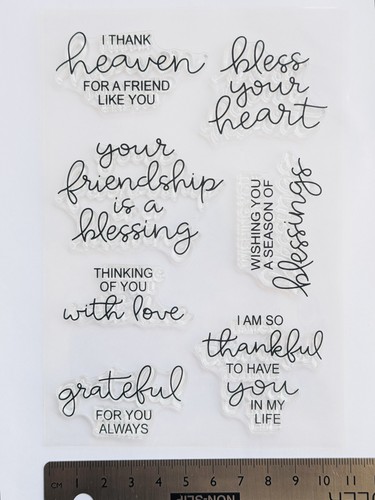 I THANK
heaven
FOR A FRIEND
LIKE YOU
bless
your
heart
your
friendship
is a
blessing
WISHING YOU
A SEASON OF
blessings
THINKING
OF YOU
with love
I AM SO
thankful
TO HAVE
you
IN MY
LIFE
grateful
FOR YOU
ALWAYS
CM 1 2 3 4 5 6 7 8 9 10 11
NON-SLIP